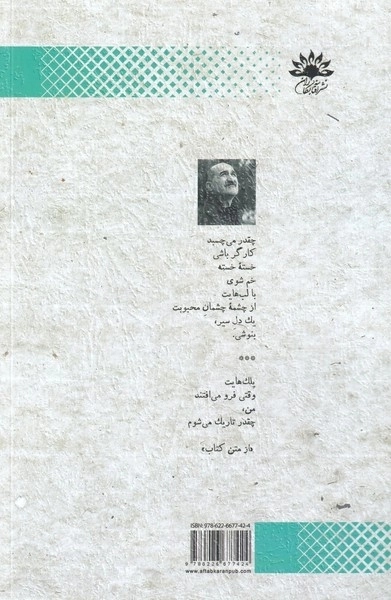 نشر آفتابکاران
چقدر می‌چسبد
کارگر باشی
خستهٔ خسته
خم شوی
با لب‌هایت
از چشمهٔ چشمان محبوبت
یك دِل سیر،
بنوشی.
***
پلك‌هایت
وقتی فرو می‌افتند
من،
چقدر تاریك می‌شوم
«از متن کتاب»
ISBN: 978-622-6677-42-4
9786226677424
www.aftabkaranpub.com